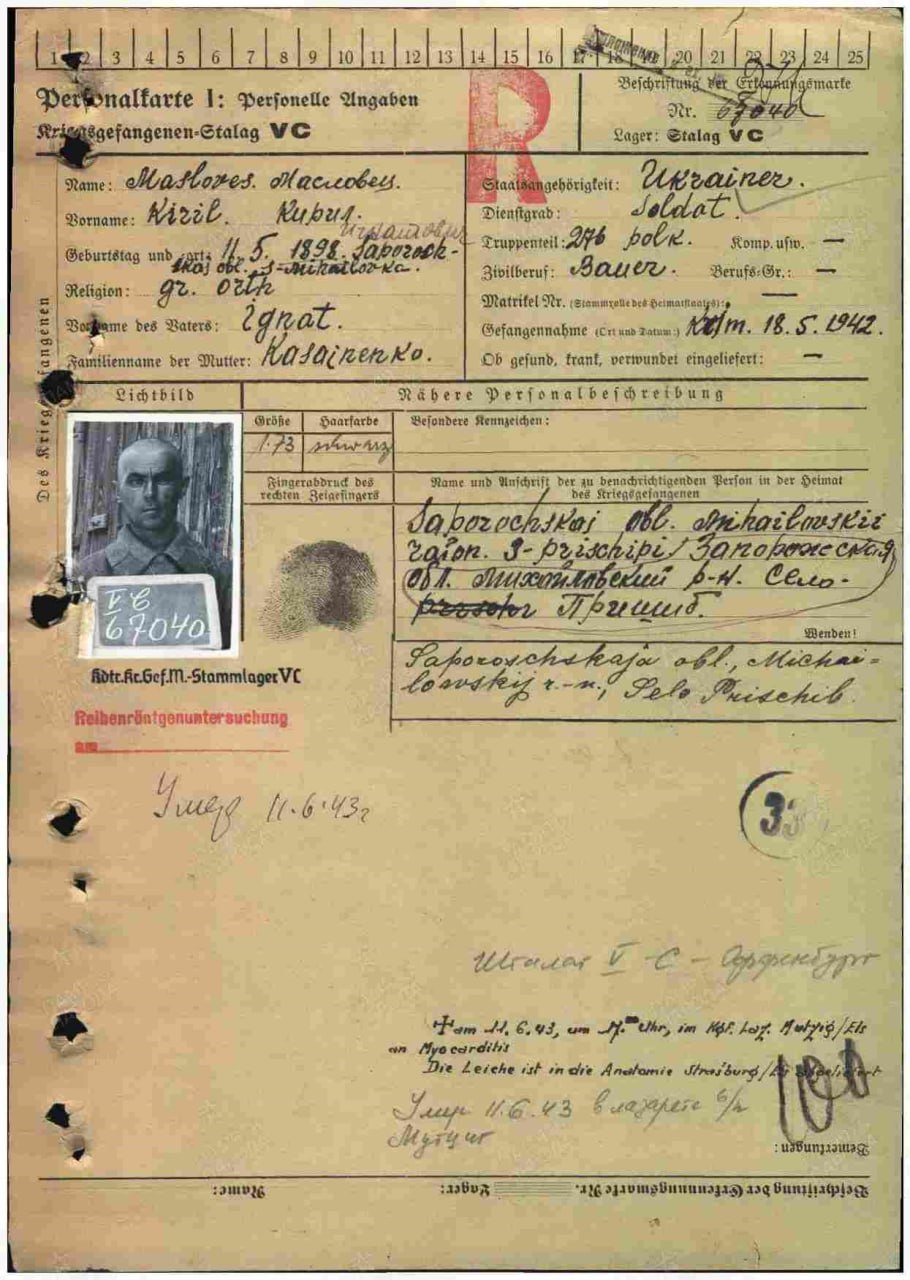 1 2 3 4 5 6 7 8 9 10 11 12 13 14 15 16 17 18 19 20 21 22 23 24 25
Personalkarte I: Personelle Angaben
Kriegsgefangenen-Stalag VC
R
Beschriftung der Erkennungsmarke
Nr. 67040
Lager: Stalag VC
Des Kriegsgefangenen
Name: Masloves. Масловец.
Vorname: Kiril. Кирил. Игнатович
Geburtstag und -ort: 11.5. 1898. Saporoch-
skaj obl. S-Mihailovka.
Religion: gr. Orth
Vorname des Vaters: Ignat.
Familienname der Mutter: Kasainenko.
Staatsangehörigkeit: Ukrainer.
Dienstgrad: Soldat.
Truppenteil: 276 polk. Komp. usw. —
Zivilberuf: Bauer. Berufs-Gr.: —
Matrikel Nr. (Stammrolle des Heimatstaates): —
Gefangennahme (Ort und Datum): Krim. 18.5.1942.
Ob gesund, krank, verwundet eingeliefert: —
Lichtbild
Nähere Personalbeschreibung
Größe Haarfarbe Besondere Kennzeichen:
1.73 schwarz
Fingerabdruck des
rechten Zeigefingers
Name und Anschrift der zu benachrichtigenden Person in der Heimat
des Kriegsgefangenen
Saporochskaj obl. Mihailovskii
raion. S-prischipi/Запорожская
обл. Михайловский р-н. Село-
Пришиб.
Wenden!
Saporoschskaja obl., Michai=
lowskij r.-n., Selo Prischib.
V C
67040
Kdtr.Kr.Gef.M.-Stammlager VC
Reihenröntgenuntersuchung
am
Умер 11.6.43г
33
Шталаг V-C - Оффенбург
✝am 11.6.43, um 17.00 Uhr, im Kgf. Laz. Mutzig/Els
an Myocarditis
Die Leiche ist in die Anatomie Straßburg/Els
100
Умер 11.6.43 в лазарете
Мутциг
Bemerkungen:
Beschriftung der Erkennungsmarke Nr. Lager: Name: